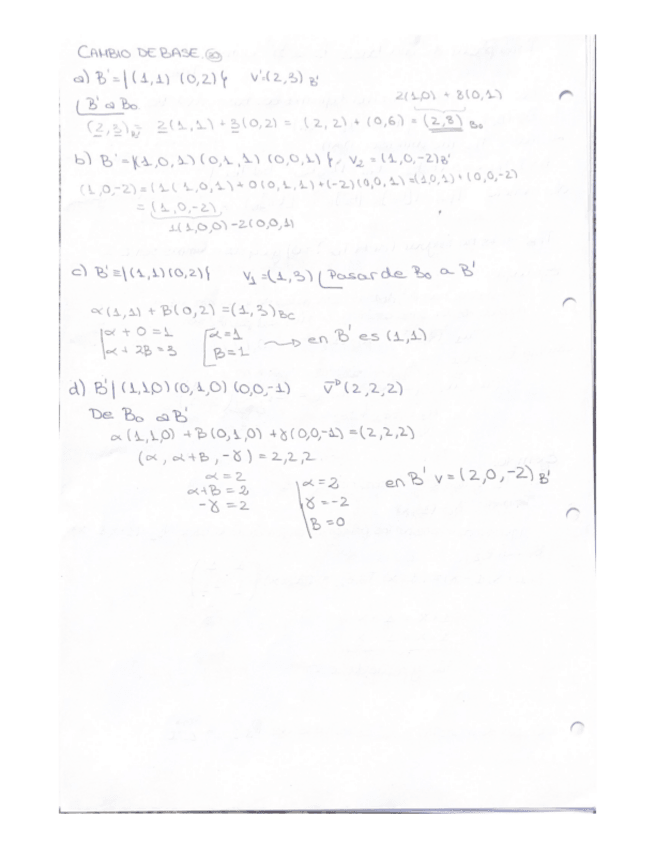 CAMBIO DE BASE
a) B'=|(1,1) (0,2)} v(2,3)B'
B' a B₀ 2(1,0) + 8(0,1)
(2,3) = 2(1,1) + 3(0,2) = (2,2) + (0,6) = (2,8) B₀
b) B'={(1,0,1) (0,1,1) (0,0,1)}, v₂ = (1,0,-2)B'
(1,0,-2) = (1(1,0,1)+0(0,1,1)+(-2)(0,0,1)=(1,0,1)+(0,0,-2)
= (1,0,-2)
1(1,0,0)-2(0,0,1)
c) B'=|(1,1)(0,2)} v₁=(1,3) (Pasar de B₀ a B'
α(1,1) + B(0,2) = (1,3)BC
α + 0 = 1 α=1
α + 2B = 3 B=1 → en B' es (1,1)
d) B'|(1,1,0) (0,1,0) (0,0,-1) v(2,2,2)
De B₀ a B'
α(1,1,0) + B(0,1,0) + γ(0,0,-1) = (2,2,2)
(α, α+B, -γ) = 2,2,2
α = 2 α = 2 en B' v = (2,0,-2)B'
α+B = 2 γ = -2
-γ = 2 B = 0